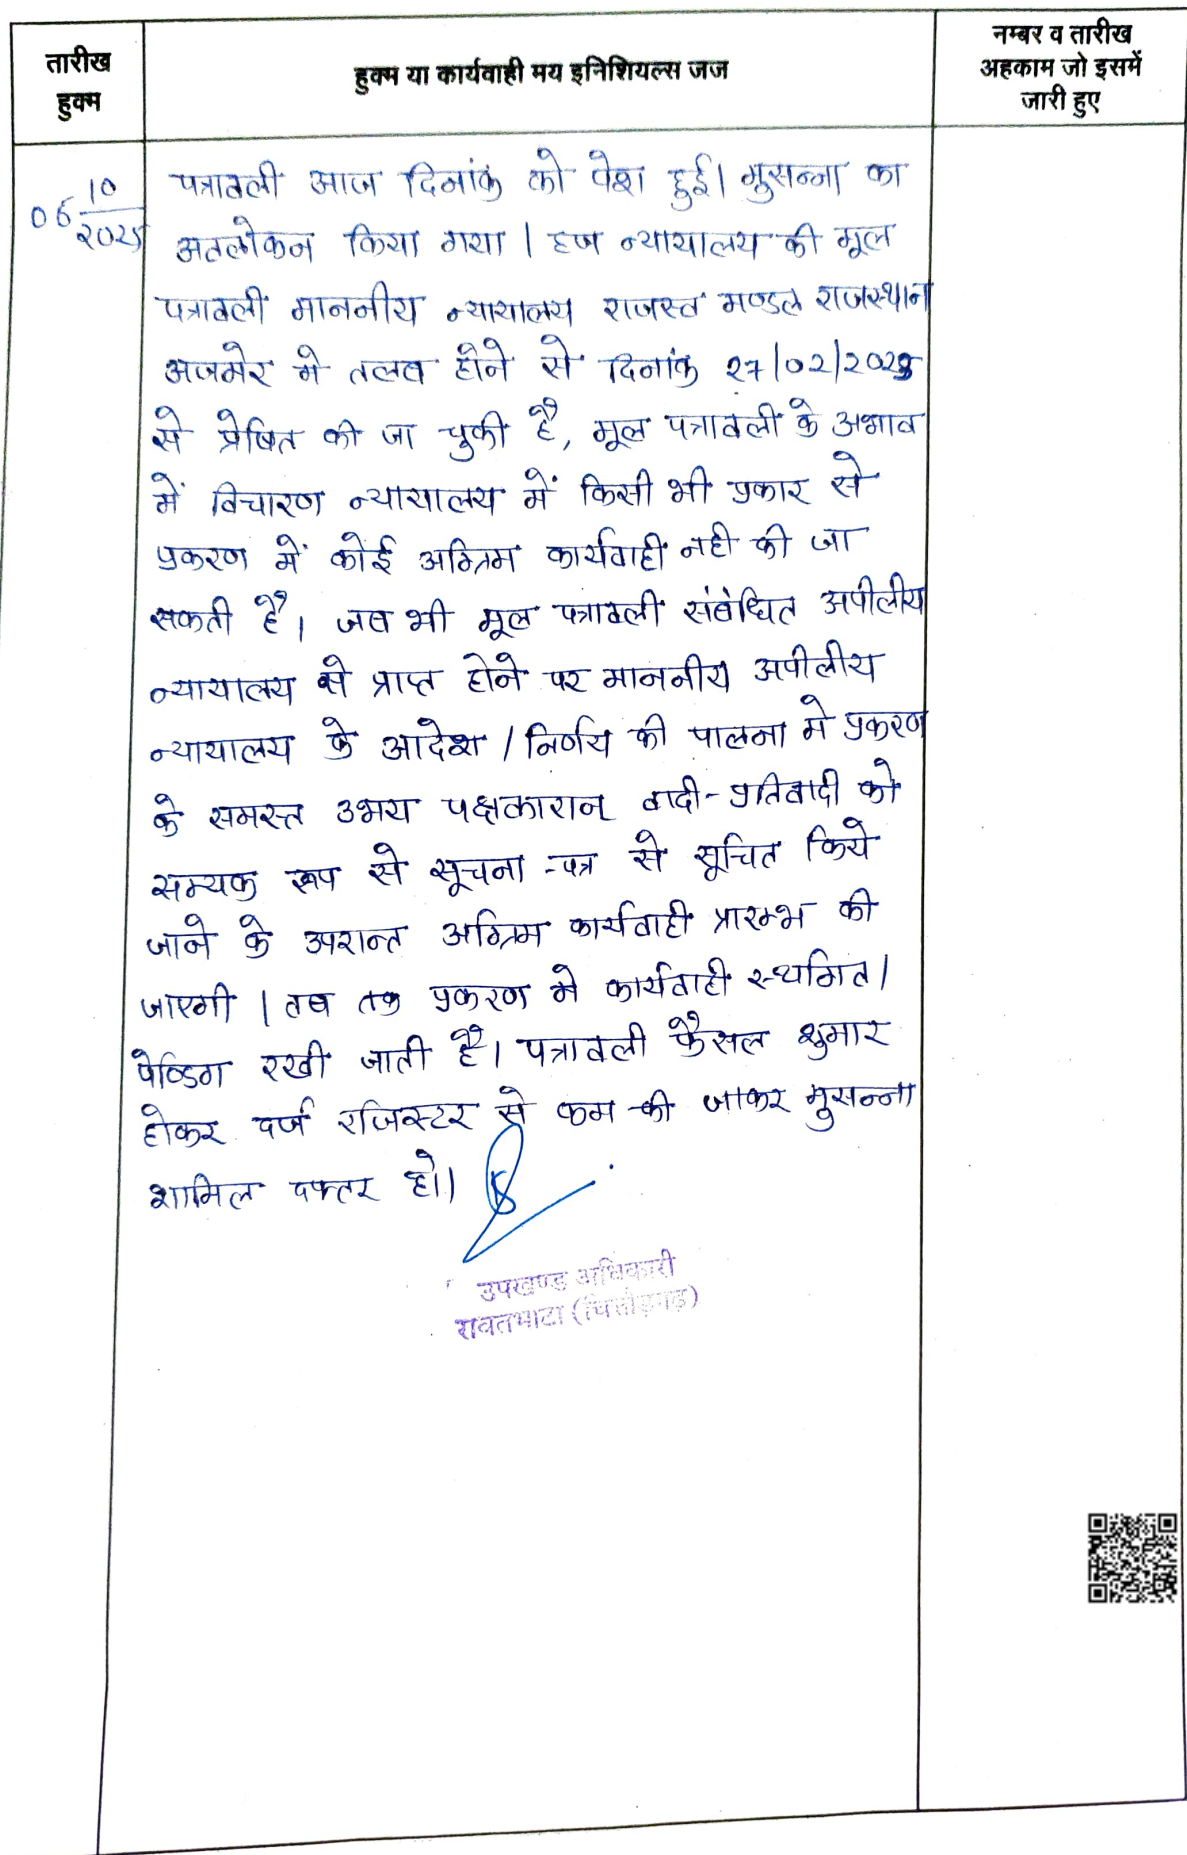 तारीख
हुक्म
हुक्म या कार्यवाही मय इनिशियल्स जज
नम्बर व तारीख
अहकाम जो इसमें
जारी हुए
06 10/2025
पत्रावली आज दिनांक को पेश हुई। मुसन्ना का
अवलोकन किया गया। हज न्यायालय की मूल
पत्रावली माननीय न्यायालय राजस्व मण्डल राजस्थान
अजमेर मे तलब होने से दिनांक 27/02/2023
से प्रेषित की जा चुकी है, मूल पत्रावली के अभाव
में विचारण न्यायालय में किसी भी प्रकार से
प्रकरण में कोई अग्रिम कार्यवाही नही की जा
सकती है। जब भी मूल पत्रावली संबंधित अपीलीय
न्यायालय से प्राप्त होने पर माननीय अपीलीय
न्यायालय के आदेश / निर्णय की पालना मे प्रकरण
के समस्त उभय पक्षकारान् वादी-प्रतिवादी को
सम्यक रूप से सूचना-पत्र से सूचित किये
जाने के उपरान्त अग्रिम कार्यवाही प्रारम्भ की
जाएगी। तब तक प्रकरण मे कार्यवाही स्थगित/
पेण्डिग रखी जाती है। पत्रावली फैसल शुमार
होकर दर्ज रजिस्टर से कम की जाकर मुसन्ना
शामिल दफ्तर हो।
उपखण्ड अधिकारी
रावतभाटा (चित्तोड़गढ़)